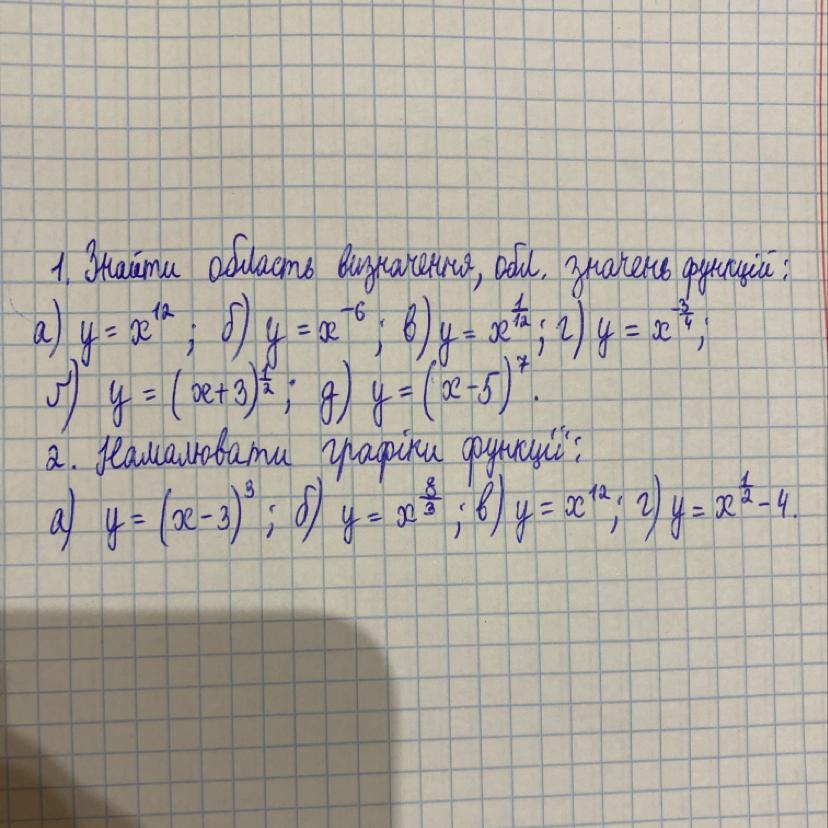 1. Знайти область визначення, обл. значень функцій:
а) y = x^12 ; б) y = x^-6 ; в) y = x^1/12 ; г) y = x^-3/4 ;
ґ) y = (x+3)^1/2 ; д) y = (x-5)^7 .
2. Намалювати графіки функції:
а) y = (x-3)^3 ; б) y = x^8/3 ; в) y = x^12 ; г) y = x^1/2 - 4.